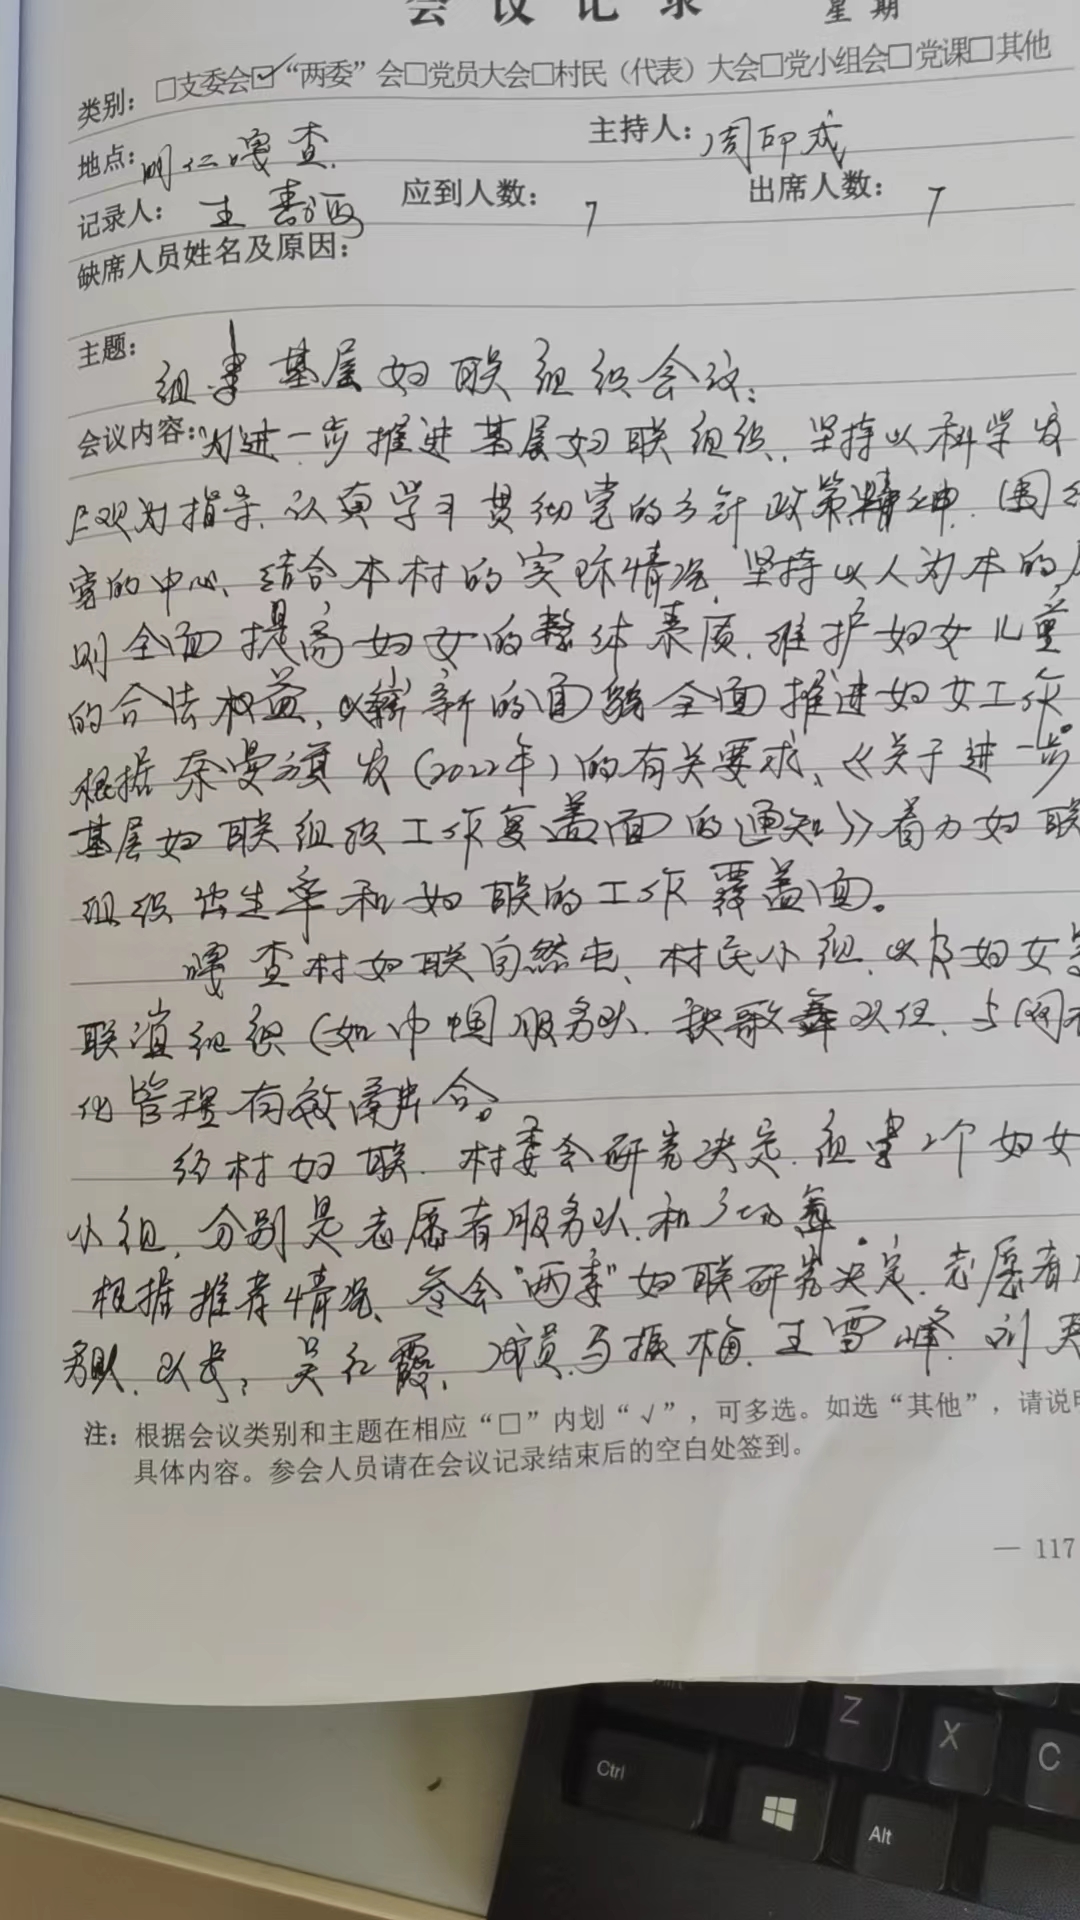 会议记录 星期
类别：□支委会□✓“两委”会□党员大会□村民（代表）大会□党小组会□党课□其他
地点：明仁嘎查. 主持人：周印成
记录人：王 应到人数：7 出席人数：7
缺席人员姓名及原因：
主题：组建基层妇联组织会议：
会议内容：为进一步推进基层妇联组织、坚持以科学发
展观为指导、认真学习贯彻党的方针政策精神、围
党的中心、结合本村的实际情况、坚持以人为本的原
则全面提高妇女的整体素质、维护妇女儿童
的合法权益、以崭新的面貌全面推进妇女工作.
根据奈曼旗发（2022年）的有关要求、《关于进一步
基层妇联组织工作复盖面的通知》着力妇联
组织出生率和妇联的工作覆盖面。
嘎查村妇联自然屯、村民小组、以及妇女
联谊组织（如巾帼服务队、秧歌舞队伍、与网
化管理有效 合。
经村妇联、村委会研究决定、组建2个妇女
小组，分别是志愿者服务队、和广场舞.
根据推荐情况、参会“两委”妇联研究决定、志愿者服
务队、队长：吴红霞、成员马振梅、王雪峰、刘
注：根据会议类别和主题在相应“□”内划“√”，可多选。如选“其他”，请说明
具体内容。参会人员请在会议记录结束后的空白处签到。
— 117
Z X C
Ctrl Alt